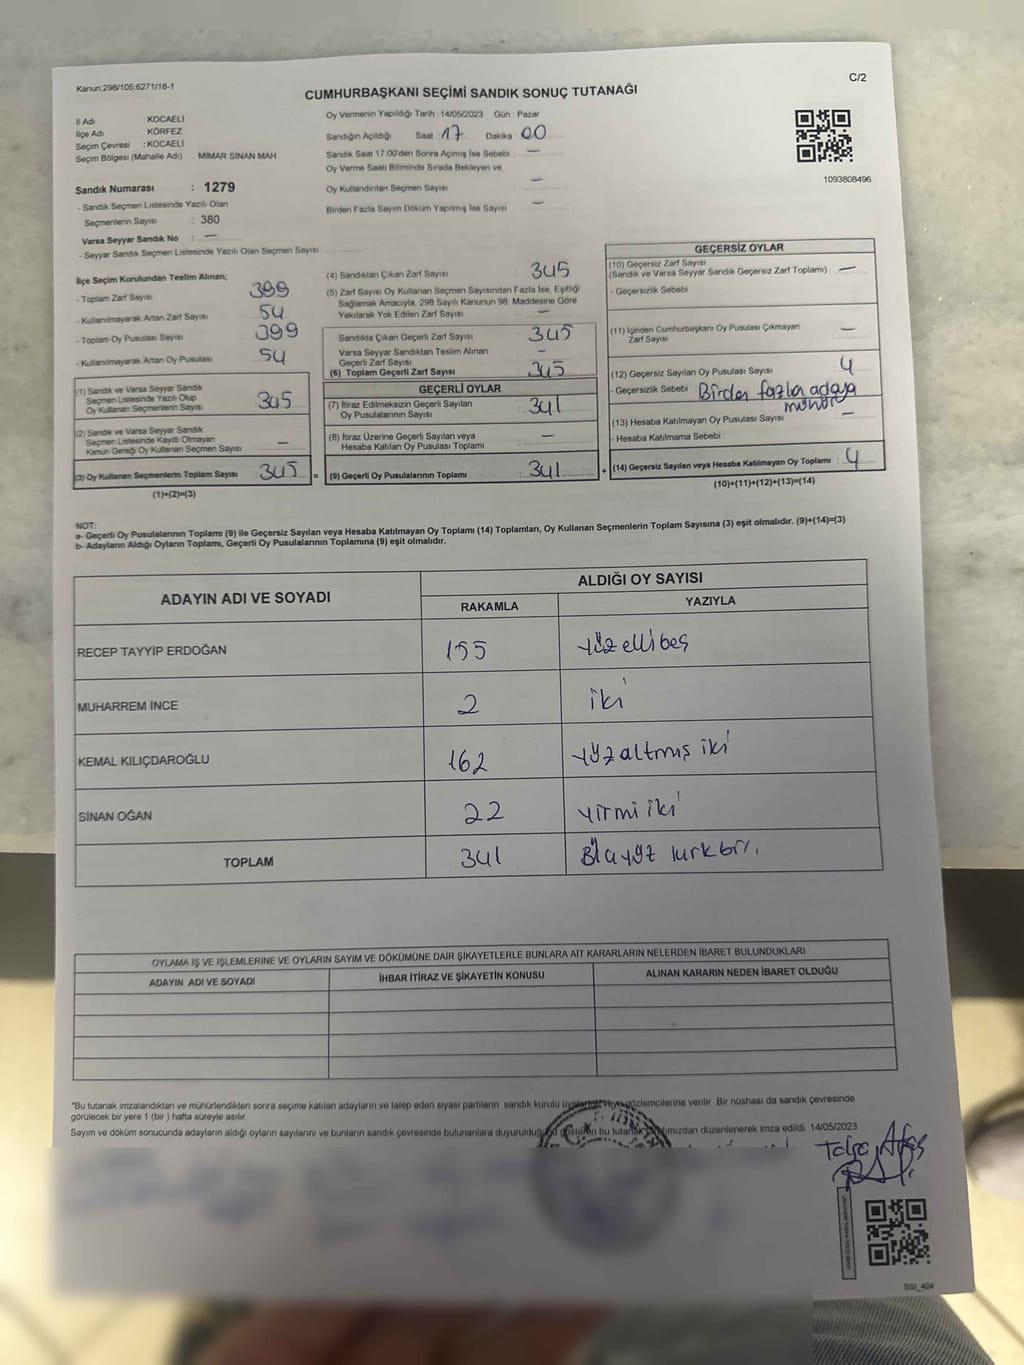 Kanun:298/105;6271/18-1
C/2
CUMHURBAŞKANI SEÇİMİ SANDIK SONUÇ TUTANAĞI
İl Adı : KOCAELİ
İlçe Adı : KÖRFEZ
Seçim Çevresi : KOCAELİ
Seçim Bölgesi (Mahalle Adı) : MİMAR SİNAN MAH
Oy Vermenin Yapıldığı Tarih :14/05/2023 Gün : Pazar
Sandığın Açıldığı Saat 17 Dakika 00
Sandık Saat 17:00'den Sonra Açımış İse Sebebi —
Oy Verme Saati Bitiminde Sırada Bekleyen ve
Oy Kullandırılan Seçmen Sayısı —
Birden Fazla Sayım Döküm Yapılmış İse Sayısı —
1093808496
Sandık Numarası : 1279
- Sandık Seçmen Listesinde Yazılı Olan
Seçmenlerin Sayısı : 380
Varsa Seyyar Sandık No : —
- Seyyar Sandık Seçmen Listesinde Yazılı Olan Seçmen Sayısı
İlçe Seçim Kurulundan Teslim Alınan;
- Toplam Zarf Sayısı 399
- Kullanılmayarak Artan Zarf Sayısı 54
- Toplam Oy Pusulası Sayısı 399
- Kullanılmayarak Artan Oy Pusulası 54
(1) Sandık ve Varsa Seyyar Sandık
Seçmen Listesinde Yazılı Olup
Oy Kullanan Seçmenlerin Sayısı 345
(2) Sandık ve Varsa Seyyar Sandık
Seçmen Listesinde Kayıtlı Olmayan
Kanun Gereği Oy Kullanan Seçmen Sayısı —
(3) Oy Kullanan Seçmenlerin Toplam Sayısı 345 =
(1)+(2)=(3)
(4) Sandıktan Çıkan Zarf Sayısı 345
(5) Zarf Sayısı Oy Kullanan Seçmen Sayısından Fazla İse, Eşitliği
Sağlamak Amacıyla, 298 Sayılı Kanunun 98. Maddesine Göre
Yakılarak Yok Edilen Zarf Sayısı —
Sandıkta Çıkan Geçerli Zarf Sayısı 345
Varsa Seyyar Sandıktan Teslim Alınan
Geçerli Zarf Sayısı —
(6) Toplam Geçerli Zarf Sayısı 345
GEÇERLİ OYLAR
(7) İtiraz Edilmeksizin Geçerli Sayılan
Oy Pusulalarının Sayısı 341
(8) İtiraz Üzerine Geçerli Sayılan veya
Hesaba Katılan Oy Pusulası Toplamı —
(9) Geçerli Oy Pusulalarının Toplamı : 341 +
GEÇERSİZ OYLAR
(10) Geçersiz Zarf Sayısı
(Sandık ve Varsa Seyyar Sandık Geçersiz Zarf Toplamı) —
- Geçersizlik Sebebi
(11) İçinden Cumhurbaşkanı Oy Pusulası Çıkmayan
Zarf Sayısı —
(12) Geçersiz Sayılan Oy Pusulası Sayısı 4
- Geçersizlik Sebebi Birden fazla adaya
mühür
(13) Hesaba Katılmayan Oy Pusulası Sayısı —
- Hesaba Katılmama Sebebi :
(14) Geçersiz Sayılan veya Hesaba Katılmayan Oy Toplamı : 4
(10)+(11)+(12)+(13)=(14)
NOT:
a- Geçerli Oy Pusulalarının Toplamı (9) ile Geçersiz Sayılan veya Hesaba Katılmayan Oy Toplamı (14) Toplamları, Oy Kullanan Seçmenlerin Toplam Sayısına (3) eşit olmalıdır. (9)+(14)=(3)
b- Adayların Aldığı Oyların Toplamı, Geçerli Oy Pusulalarının Toplamına (9) eşit olmalıdır.
ADAYIN ADI VE SOYADI ALDIĞI OY SAYISI
RAKAMLA YAZIYLA
RECEP TAYYİP ERDOĞAN 155 yüzellibeş
MUHARREM İNCE 2 iki
KEMAL KILIÇDAROĞLU 162 yüzaltmış iki
SİNAN OĞAN 22 yirmi iki
TOPLAM 341
OYLAMA İŞ VE İŞLEMLERİNE VE OYLARIN SAYIM VE DÖKÜMÜNE DAİR ŞİKAYETLERLE BUNLARA AİT KARARLARIN NELERDEN İBARET BULUNDUKLARI
ADAYIN ADI VE SOYADI İHBAR İTİRAZ VE ŞİKAYETİN KONUSU ALINAN KARARIN NEDEN İBARET OLDUĞU
"Bu tutanak imzalandıktan ve mühürlendikten sonra seçime katılan adayların ve talep eden siyasi partilerin sandık kurulu gözlemcilerine verilir. Bir nüshası da sandık çevresinde
görülecek bir yere 1 (bir ) hafta süreyle asılır.
Sayım ve döküm sonucunda adayların aldığı oyların sayılarını ve bunların sandık çevresinde bulunanlara duyurulduğunu gösteren bu tutanak düzenlenerek imza edildi. 14/05/2023
SSİ_404